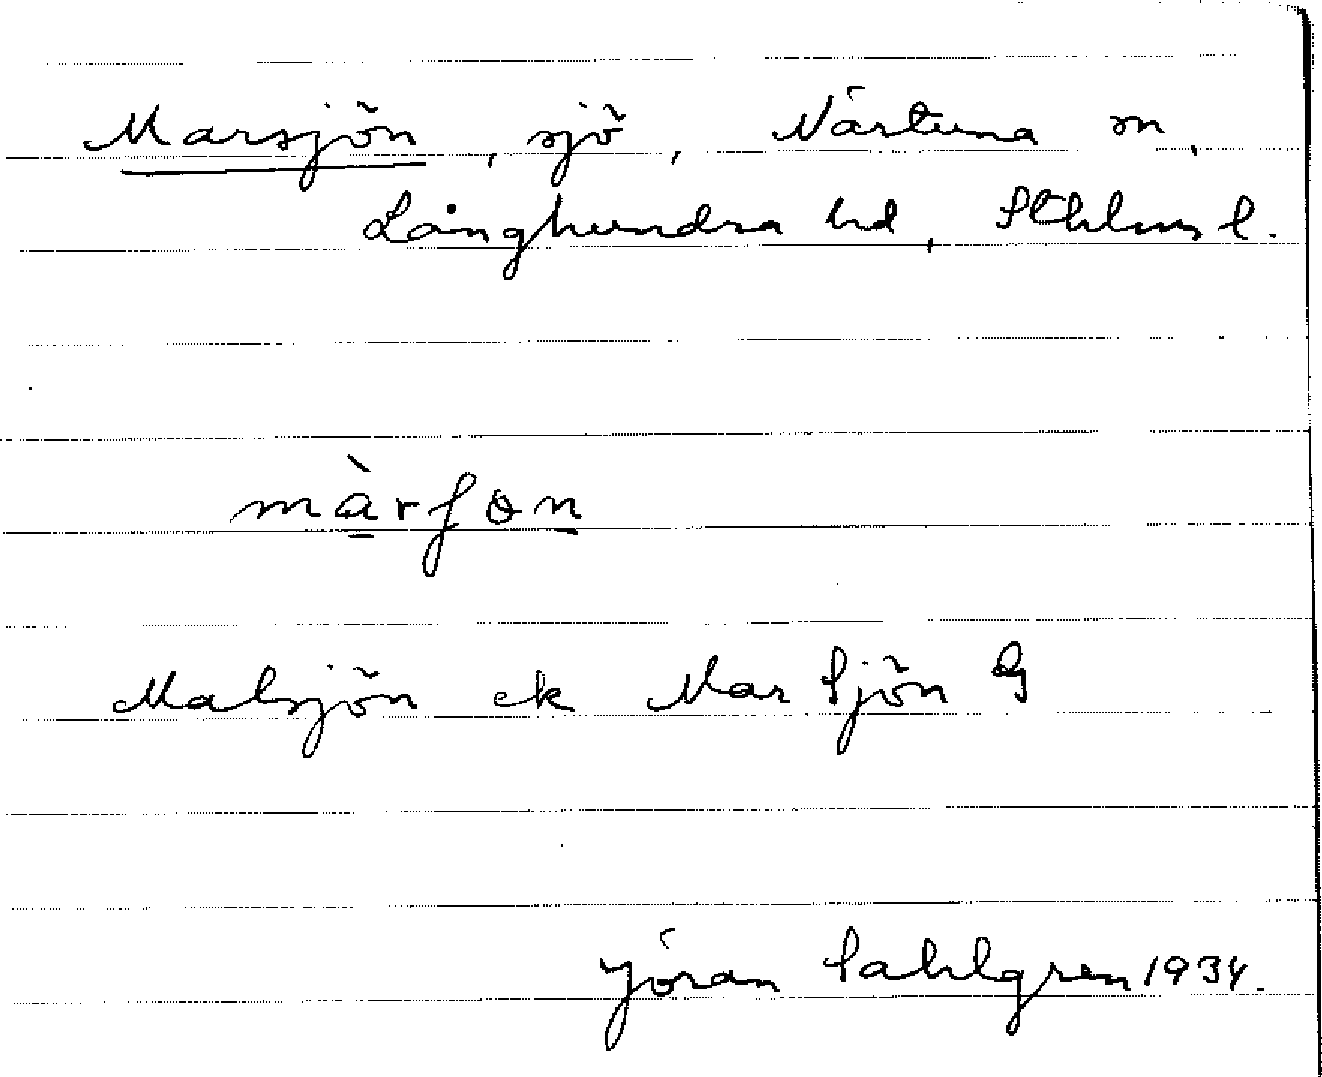 Marsjön, sjö, Närtuna sn,
Långhundra hd, Sthlms l.
màrʃɵn
Malsjön ek Mar Sjön G
Jöran Sahlgren 1934.